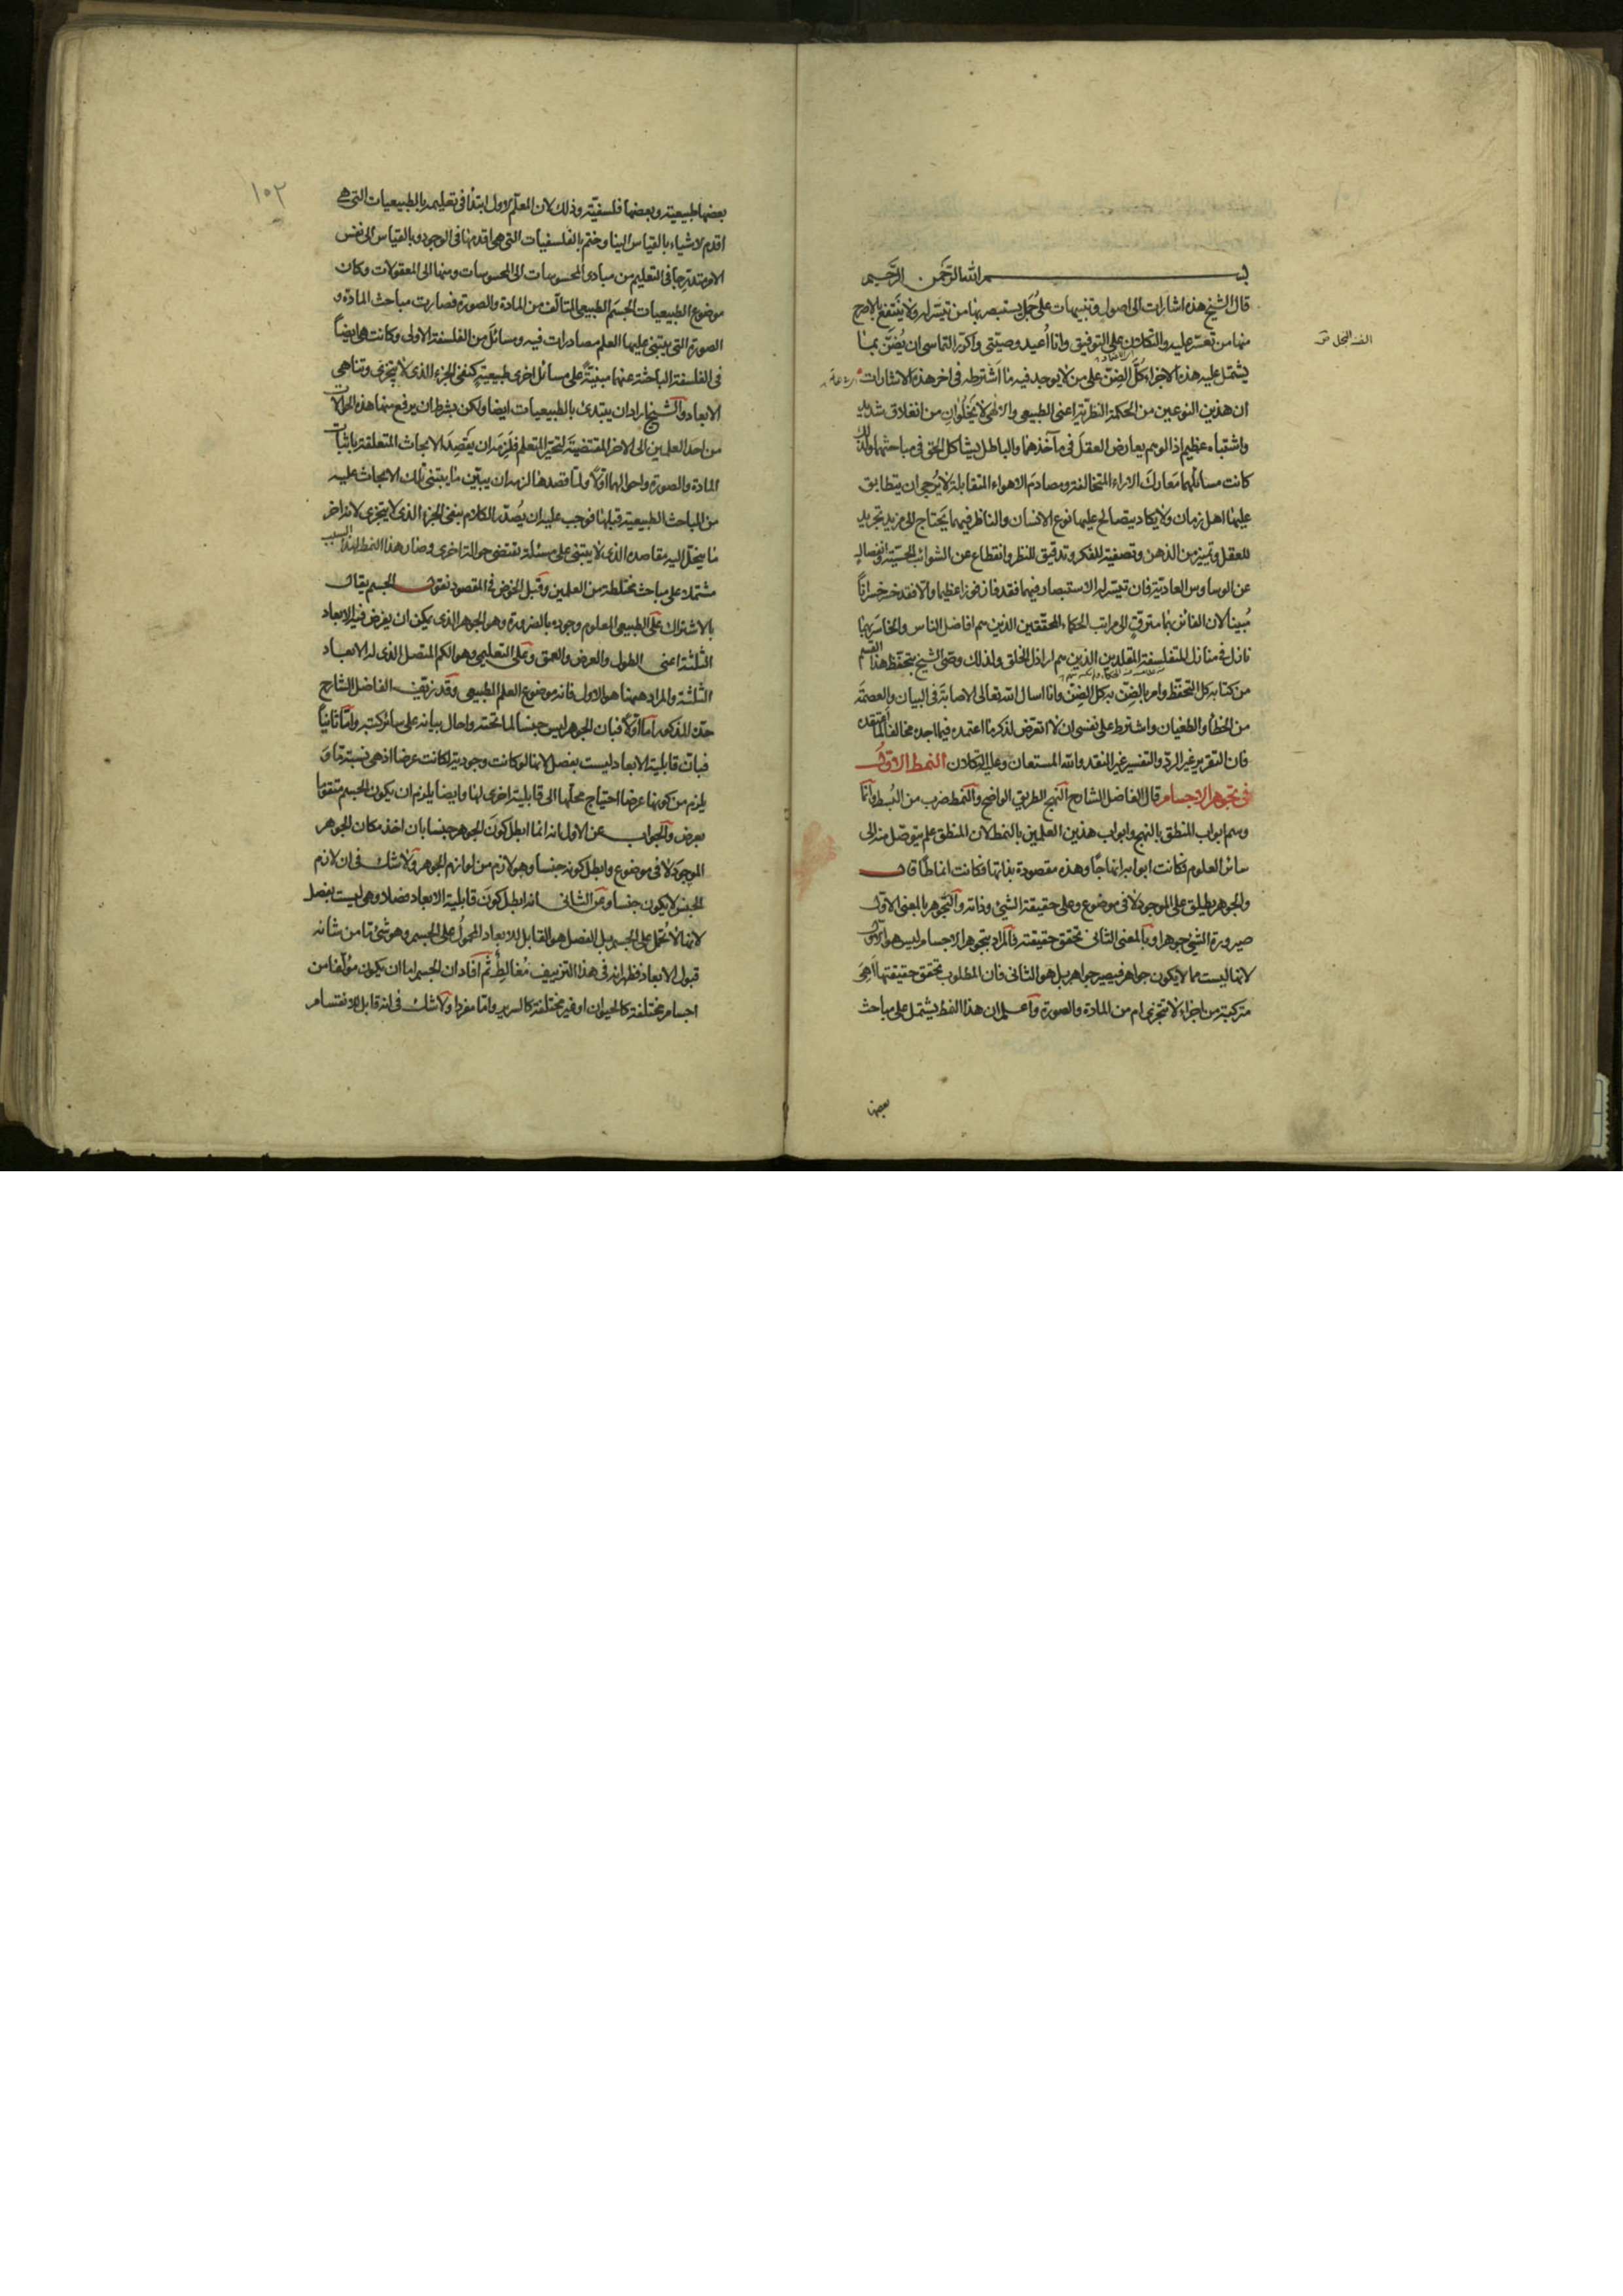 بسم الله الرحمن الرحيم
قال الشيخ هذه اشارات الى اصول وتنبيهات على جمل يستبصر بها من تيسر له ولا ينتفع بالاصرح
منها من تعسر عليه والتكلان على التوفيق وانا اُعيد وصيتى واكرر التماسى ان يُضَنّ بما
الضنة البخل ق
يشتمل عليه هذه الاجزاء كلَّ الضنّ على من لا يوجد فيه ما اشترطه فى اخر هذه الاشارات
ان هذين النوعين من الحكمة النظرية اعنى الطبيعى والالهى لا يَخلُوانِ من انغلاق شديد
واشتباه عظيم اذ الوهم يعارض العقل فى مآخذهما والباطل يشاكل الحق فى مباحثهما ولذلك
كانت مسائلهما مَعارك الاراء المتخالفة ومصادم الاهواء المتقابلة لا يُرجى ان يتطابق
عليها اهل زمان ولا يكاد يتصالح عليها نوع الانسان والناظر فيهما يَحتاج الى مزيد تجريد
للعقل وتمييز من الذهن وتصفية للفكر وتدقيق للنظر وانقطاع عن الشوائب الحسية وانفصال
عن الوساوس العادية فان تيسر له الاستبصار فيهما فقد فاز فوزا عظيما والا فقد خسر خسرانًا
مُبينا لان الفائز بهما مترقٍّ الى مراتب الحكماء المحققين الذين هم افاضل الناس والخاسر بهما
نازل فى منازل المتفلسفة المقلدين الذين هم اراذل الخلق ولذلك وصّى الشيخ بتحفظ هذا القسم
من كتابه كل التحفظ وامر بالضنّ به كل الضنّ وانا اسال الله تعالى الاصابة فى البيان والعصمة
من الخطأ والطغيان واشترط على نفسى ان لا اتعرض لذكر ما اعتمده فيما اجده مخالفا لما اعتقده
فان التقرير غير الردّ والتفسير غير النقد والله المستعان وعليه التكلان النمط الاول
فى تجوهر الاجسام قال الفاضل الشارح النهج الطريق الواضح والنمط ضرب من البُسط وانما
وسم ابواب المنطق بالنهج وابواب هذين العلمين بالنمط لان المنطق علم يتوصل منه الى
سائر العلوم فكانت ابوابه انهاجًا وهذه مقصودة بذاتها فكانت انماطا قال
والجوهر يطلق على الموجود لا فى موضوع وعلى حقيقة الشئ وذاته والتجوهر بالمعنى الاول
صيرورة الشئ جوهرا وبالمعنى الثانى تحقق حقيقته فالمراد بتجوهر الاجسام ليس هو الاول
لانها ليست مما لا يكون جواهر فيصير جواهر بل هو الثانى فان المطلوب تحقق حقيقتها اَهِىَ
متركبة من اجزاء لا تتجزى ام من المادة والصورة واعلم ان هذا النمط يشتمل على مباحث
بعضها
١٠٢
بعضها طبيعية وبعضها فلسفيّة وذلك لان المعلّم الاول ابتدأ فى تعليمه بالطبيعيات التى هى
اقدم الاشياء بالقياس الينا وختم بالفلسفيات التى هى اقدمها فى الوجود وبالقياس الى نفس
الامر متدرجا فى التعليم من مبادئ المحسوسات الى المحسوسات ومنها الى المعقولات وكان
موضوع الطبيعيات الجسم الطبيعى المتالّف من المادة والصورة فصارت مباحث المادة و
الصورة التى يبتنى عليها العلم مصادرات فيه ومسائل من الفلسفة الاولى وكانت هى ايضا
فى الفلسفة الباحثة عنها مبنيّة على مسائل اخرى طبيعية كنفى الجزء الذى لا يتجزى وتناهى
الابعاد والشيخ اراد ان يبتدئ بالطبيعيات ايضا ولكن بشرط ان يرفع منها هذه الحوالات
من احد العلمين الى الاخر المقتضية لتحيّر المتعلم فلزمه ان يقصد الابحاث المتعلقة باثبات
المادة والصورة واحوالهما اوّلا ولما قصدها لزمه ان يبيّن ما يبتنى تلك الابحاث عليه
من المباحث الطبيعية قبلها فوجب عليه ان يُصدّر الكلام بنفى الجزء الذى لا يتجزى لانه اخر
ما ينحلّ اليه مقاصده الذى لا يبتنى على مسئلة تقتضى حوالة اخرى وصار هذا النمط لهذا السبب
مشتملا على مباحث مختلطة من العلمين وقبل الخوض فى المقصود نقول الجسم يقال
بالاشتراك على الطبيعى المعلوم وجوده بالضرورة وهو الجوهر الذى يمكن ان يفرض فيه الابعاد
الثلثة اعنى الطول والعرض والعمق وعلى التعليمى وهو الكم المتصل الذى له الابعاد
الثلثة والمراد ههنا هو الاول فانه موضوع العلم الطبيعى وقد زيّف الفاضل الشارح
حدّه المذكور اما اولا فبان الجوهر ليس جنسا لما تحته واحال بيانه على سائر كتبه وامّا ثانيا
فبان قابلية الابعاد ليست بفصل لانها لو كانت وجودية لكانت عرضا اذ هى نسبة ما و
يلزم من كونها عرضا احتياج محلّها الى قابلية اخرى لها وايضا يلزم ان يكون الجسم متقوما
بعرض والجواب عن الاول انه انما ابطل كونَ الجوهر جنسا بان اخذ مكان الجوهر
الموجودَ لا فى موضوع وابطل كونه جنسا وهو لازم من لوازم الجوهر ولا شك فى ان لازم
الجنس لا يكون جنسا وعن الثانى انه ابطل كونَ قابلية الابعاد فصلا وهى ليست بفصل
لانها لا تُحمل على الجسم بل الفصل هو القابل للابعاد المحمولُ على الجسم وهو شئ ما من شانه
قبول الابعاد فظهر انه فى هذا التزييف مُغالِطٌ ثم افاد ان الجسم اما ان يكون مؤلفا من
اجسام مختلفة كالحيوان او غير مختلفة كالسرير واما مفردا ولا شك فى انه قابل للانقسام